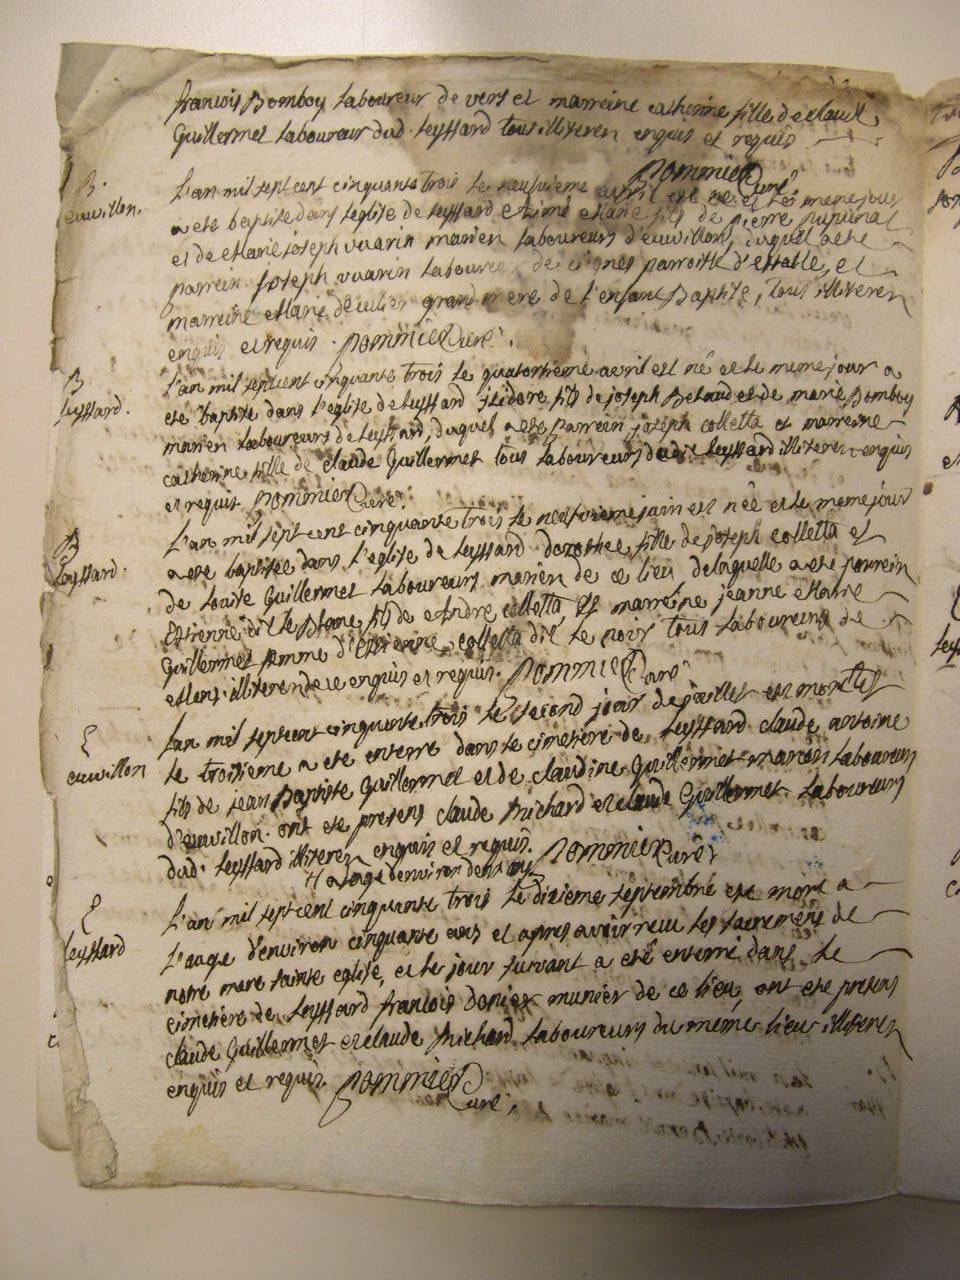 francois Bomboy Laboureur de vers et marreine catherine fille de claude
Guillermet Laboureur dud. Leyssard tous illiteres enquis et requis
Pommier Curé
B.
euvillon.
L'an mil sept cent cinquante trois le neufvieme avril est né et le meme jour
a eté baptisé dans l'eglise de Leyssard Aimé Marie fils de pierre
et de Marie joseph vuarin mariés Laboureurs d'euvillon, duquel a eté
parrein joseph vuarin Laboureur de parroisse d'estalle, et
marreine Marie grand mere de l'enfant Baptisé, tous illiteres
enquis et requis. Pommier Curé.
B
Leyssard.
L'an mil sept cent cinquante trois le quatorzieme avril est né et le meme jour a
eté baptisé dans l'eglise de Leyssard isidore fils de joseph et de marie Bomboy
mariés Laboureurs de Leyssard, duquel a eté parrein joseph colletta et marreine
catherine fille de claude Guillermet tous Laboureurs dudit Leyssard illiteres enquis
et requis Pommier Curé.
B
Leyssard.
L'an mil sept cent cinquante trois le neufvieme juin est née et le meme jour
a eté baptisée dans l'eglise de Leyssard dorothée fille de joseph colletta et
de Louise Guillermet Laboureurs mariés de ce lieu de laquelle a eté parrein
Estienne dit le Blanc fils de Andre colletta, et marreine jeanne Marie
Guillermet femme d'Estienne colletta dit le noir tous Laboureurs de
illiteres de ce enquis et requis. Pommier Curé
E
euvillon
L'an mil sept cent cinquante trois le second jour de juillet est mort et
le troisieme a eté enterré dans le cimetière de Leyssard claude antoine
fils de jean Baptiste Guillermet et de claudine Guillermet mariés Laboureurs
d'euvillon. ont eté presens claude Michard et claude Guillermet Laboureurs
dud. Leyssard illiteres enquis et requis. Pommier Curé
H a l'age d'environ
E
Leyssard
L'an mil sept cent cinquante trois le dixieme septembre est mort a
l'auge d'environ cinquante ans et apres avoir receu les sacremens de
notre mere sainte eglise, et le jour suivant a eté enterré dans le
cimetière de Leyssard francois munier de ce lieu, ont eté presens
claude Guillermet et claude Michard Laboureurs du meme lieu illiteres
enquis et requis. Pommier Curé.